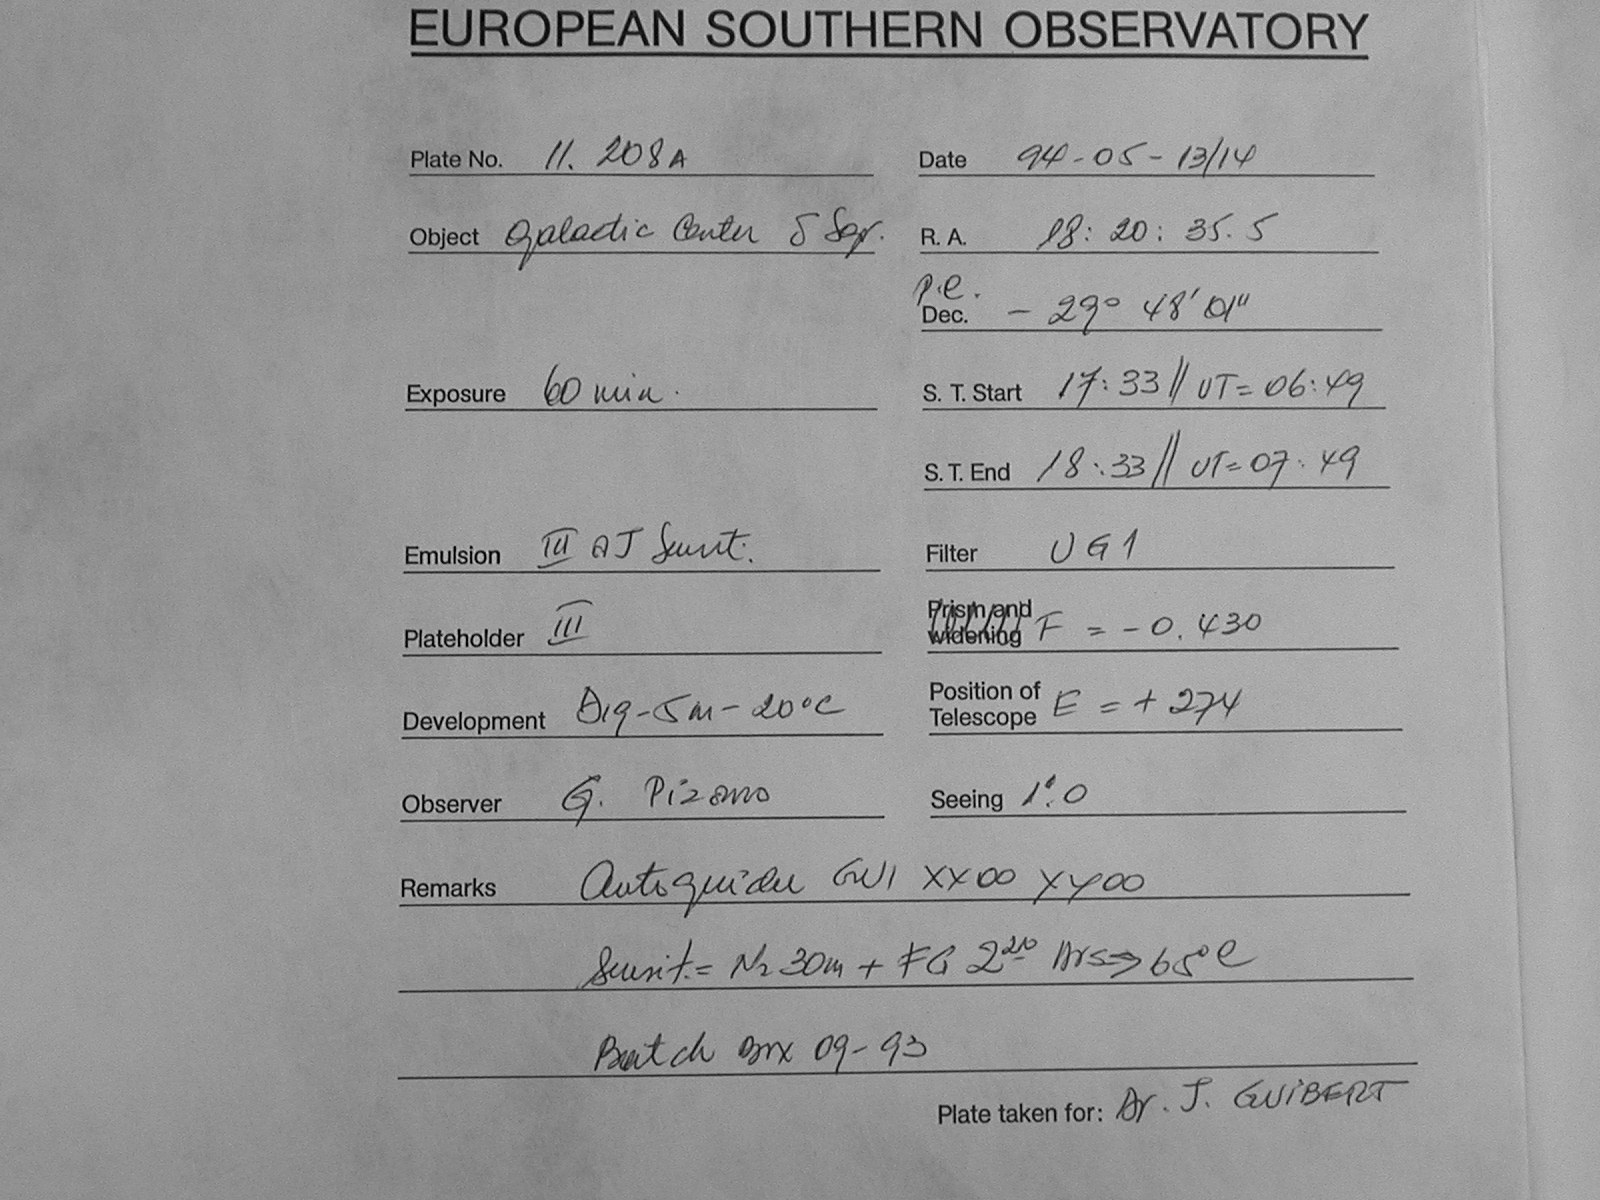 EUROPEAN SOUTHERN OBSERVATORY
Plate No. 11. 208A Date 94-05-13/14
Object Galactic Center δ Sgr. R. A. 18: 20: 35.5
p.e.
Dec. - 29° 48' 01"
Exposure 60 min. S. T. Start 17:33 // UT= 06:49
S. T. End 18:33 // UT= 07:49
Emulsion III aJ Sensit. Filter UG1
Plateholder III Prism and widening F = -0.430
Development D19-5m-20°C Position of Telescope E = + 274
Observer G. Pizarro Seeing 1".0
Remarks Autoguider GW1 XX00 YY00
Sensit.= N2 30m + FG 2 Hrs => 65°C
Batch 09-93
Plate taken for: Dr. J. GUIBERT